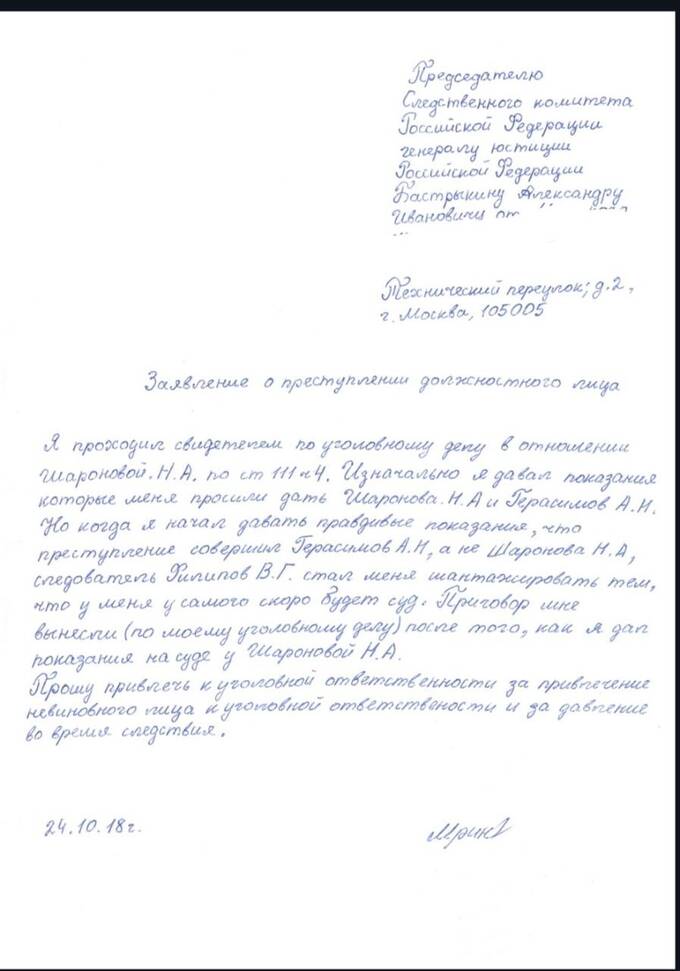 Председателю
Следственного комитета
Российской Федерации
генералу юстиции
Российской Федерации
Бастрыкину Александру
Ивановичу от
Технический переулок, д.2,
г. Москва, 105005
Заявление о преступлении должностного лица
Я проходил свидетелем по уголовному делу в отношении
Шароновой.Н.А. по ст 111 ч4. Изначально я давал показания
которые меня просили дать Шаронова.Н.А и Герасимов А.Н.
Но когда я начал давать правдивые показания, что
преступление совершил Герасимов А.Н, а не Шаронова Н.А,
следователь Филипов В.Г. стал меня шантажировать тем,
что у меня у самого скоро будет суд. Приговор мне
вынесли (по моему уголовному делу) после того, как я дал
показания на суде у Шароновой Н.А.
Прошу привлечь к уголовной ответственности за привлечение
невиновного лица к уголовной ответствености и за давление
во время следствия.
24.10.18г.